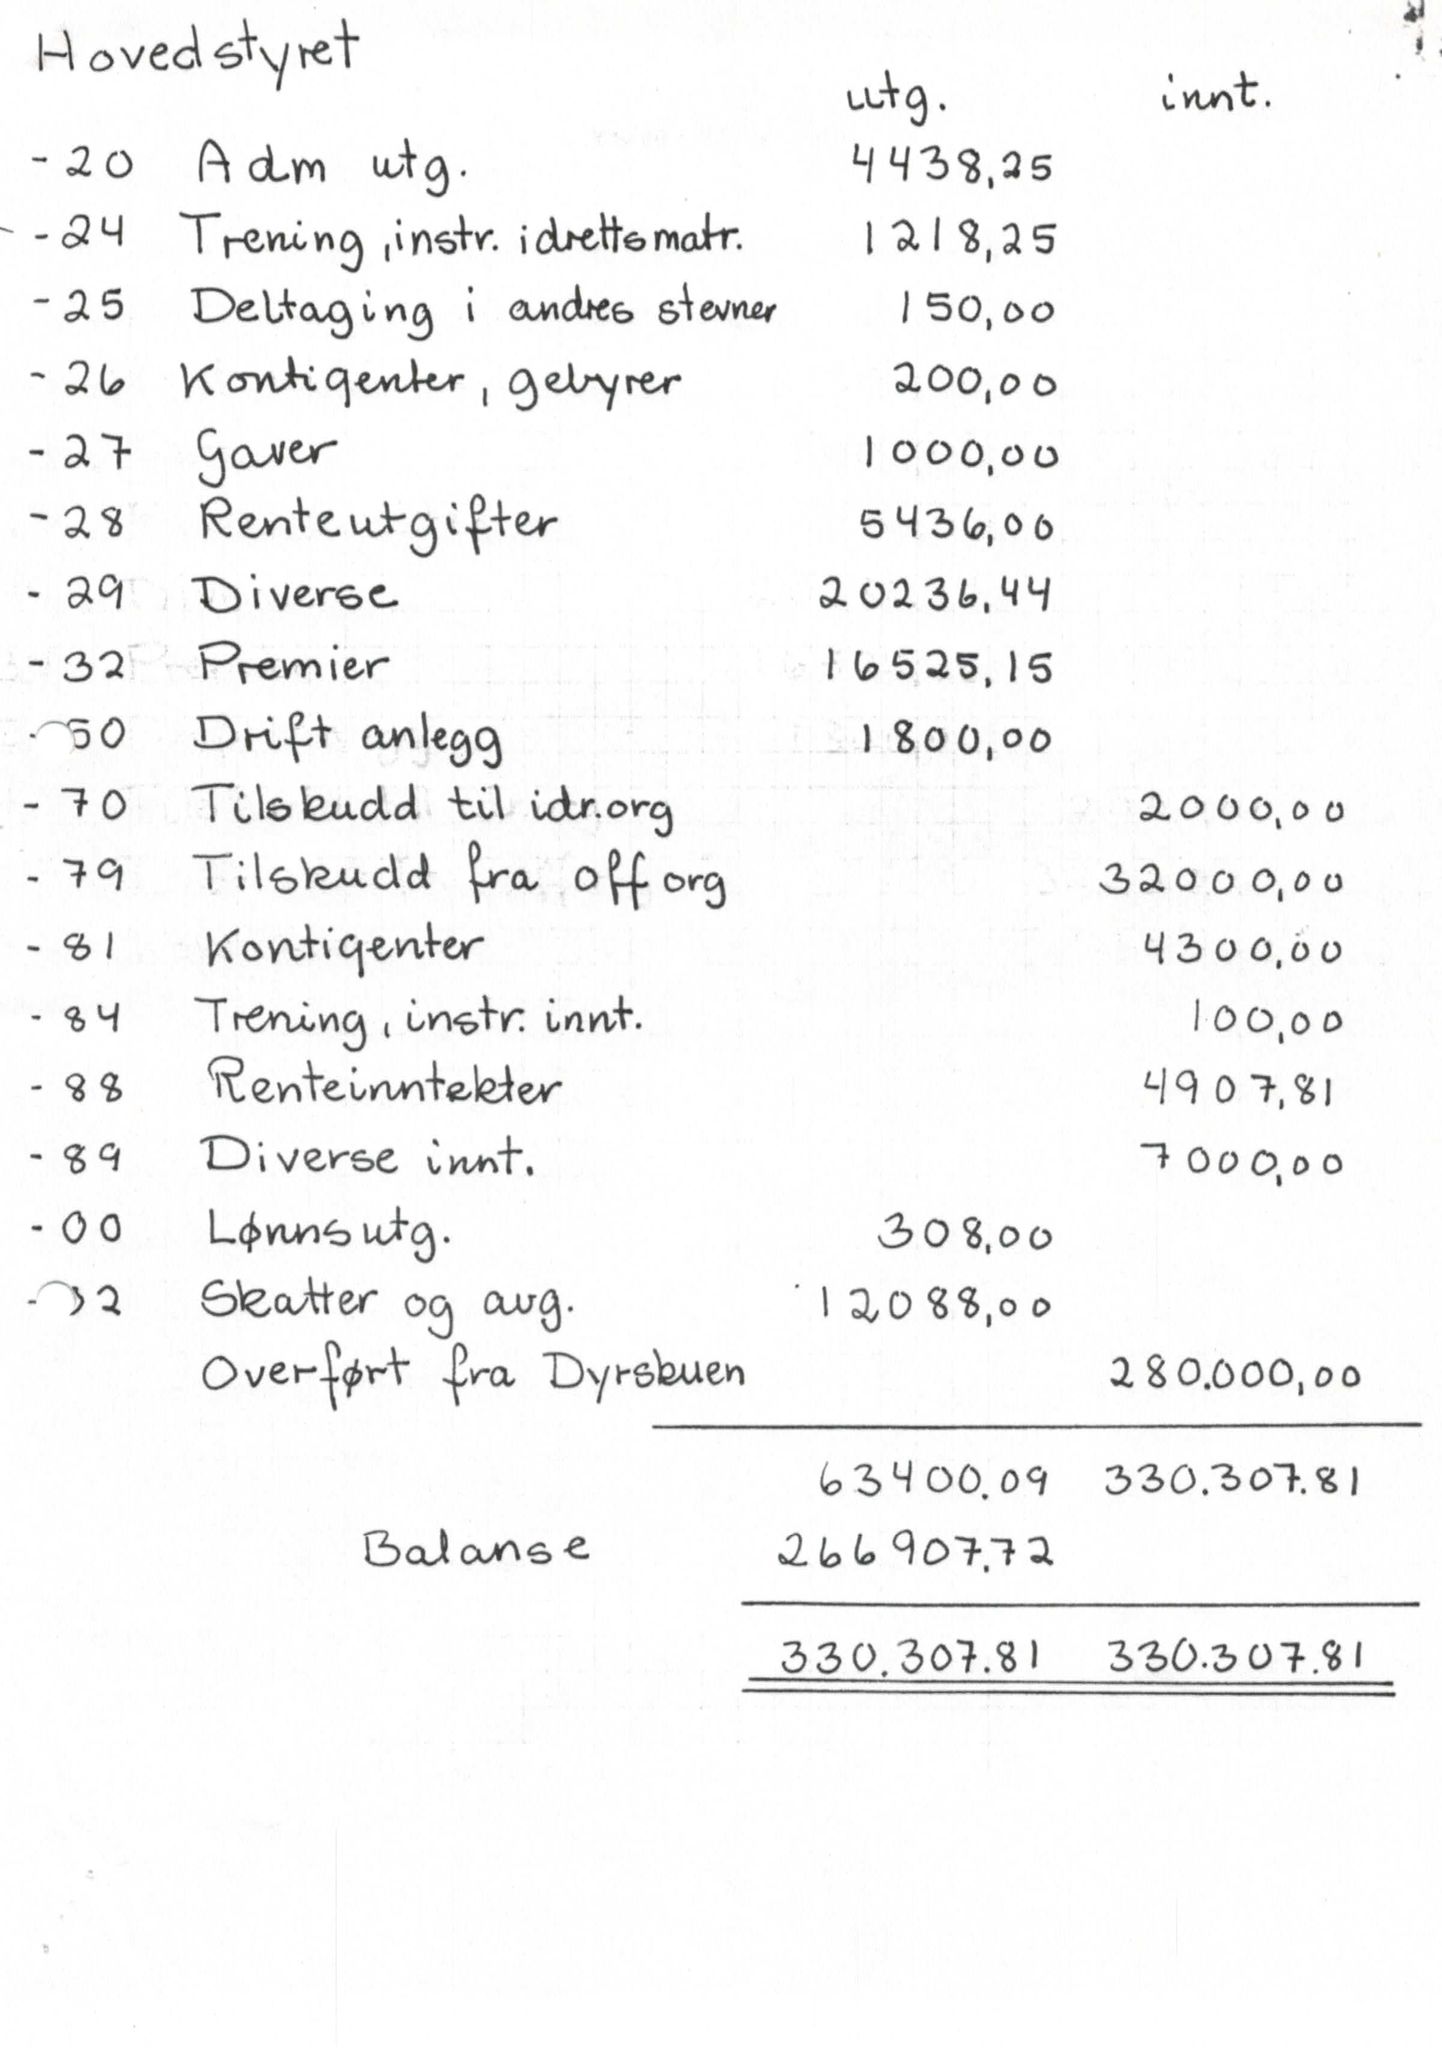 Hovedstyret
utg. innt.
-20 Adm utg. 4438,25
-24 Trening, instr. idrettsmatr. 1218,25
-25 Deltaging i andres stevner 150,00
-26 Kontigenter, gebyrer 200,00
-27 Gaver 1000,00
-28 Renteutgifter 5436,00
-29 Diverse 20236,44
-32 Premier 16525,15
-50 Drift anlegg 1800,00
-70 Tilskudd til idr.org 2000,00
-79 Tilskudd fra off org 32000,00
-81 Kontigenter 4300,00
-84 Trening, instr. innt. 100,00
-88 Renteinntekter 4907,81
-89 Diverse innt. 7000,00
-00 Lønnsutg. 308,00
Skatter og avg. 12088,00
Overført fra Dyrskuen 280.000,00
63400.09 330.307.81
Balanse 266907.72
330.307.81 330.307.81